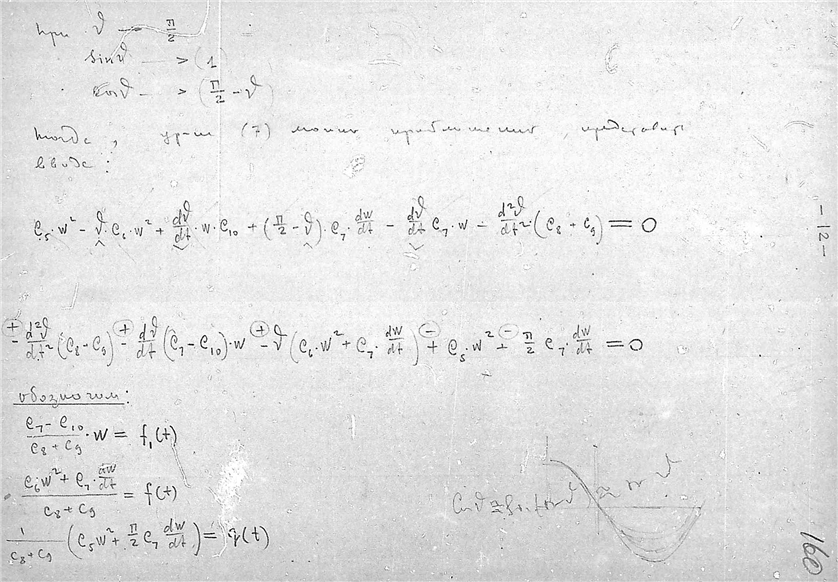 при ϑ → π/2
sinϑ → (1)
cosϑ → (π/2 - ϑ)
тогда, ур-ие (7) можно приближенно представить
в виде:
C₅·w² - ϑ·C₆·w² + dϑ/dt·w·C₁₀ + (π/2 - ϑ)·C₇·dw/dt - dϑ/dt C₇·w - d²ϑ/dt²·(C₈ + C₉) = 0
- 12 -
(+) (+) (+) (-) (-)
- d²ϑ/dt² (C₈ - C₉) - dϑ/dt (C₇ - C₁₀)·w - ϑ (C₆·w² + C₇·dw/dt) + C₅·w² + π/2 C₇·dw/dt = 0
обозначим:
(C₇ - C₁₀)/(C₈ + C₉)·w = f₁(t)
(C₆w² + C₇·dw/dt)/(C₈ + C₉) = f(t)
1/(C₈ + C₉) (C₅w² + π/2 C₇ dw/dt) = q(t)
160